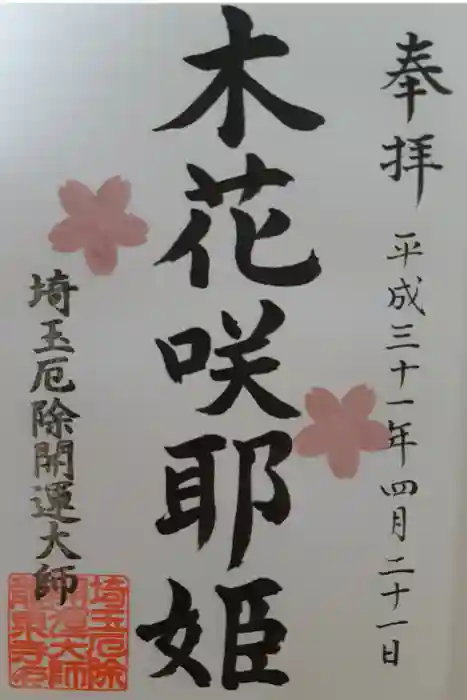 奉拝
平成三十一年四月二十一日
木花咲耶姫
埼玉厄除開運大師
埼玉厄除
開運大師
龍泉寺